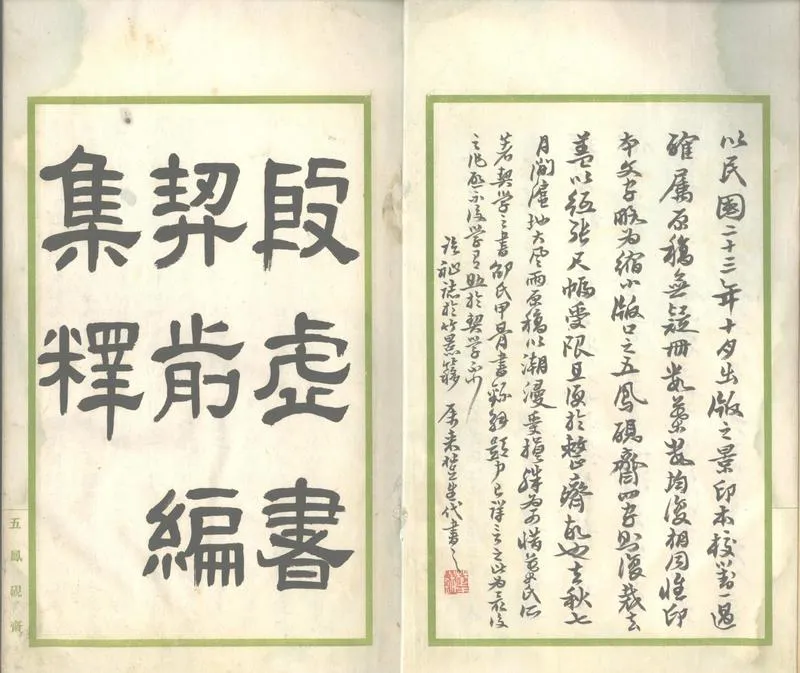 以民國二十三年十月出版之景印本校對一過
確屬原稿無疑冊數葉數均復相同惟印
本文字略為縮小版口之五鳳硯齋四字則復裁去
蓋以紙張尺幅受限且便於整齊故也去秋七
月間滬地大風雨原稿以潮浸受損殊為可惜葉氏所
著契學之書邵氏甲骨書錄解題中已詳言之此為最後
之作 後學有助於契學不少
誌於竹景簃 屬來楚生代書之
殷虛書
契前編
集釋
五鳳硯齋